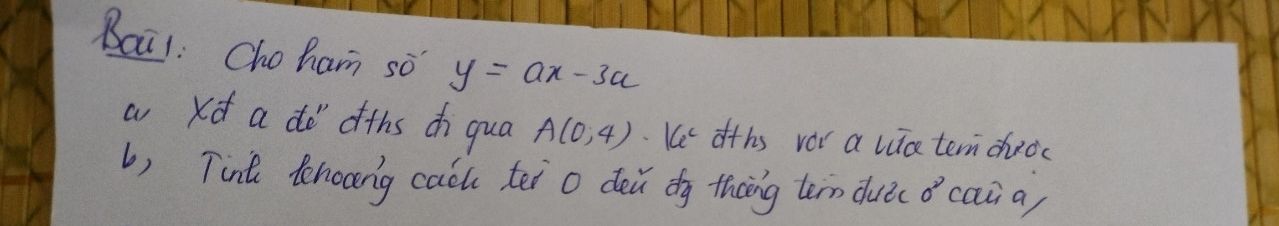 Bài 1: Cho hàm số y = ax - 3a
a, Xđ a để đths đi qua A(0;4). Vẽ đths với a vừa tìm được
b, Tính khoảng cách từ O đến đg thẳng tìm được ở câu a,